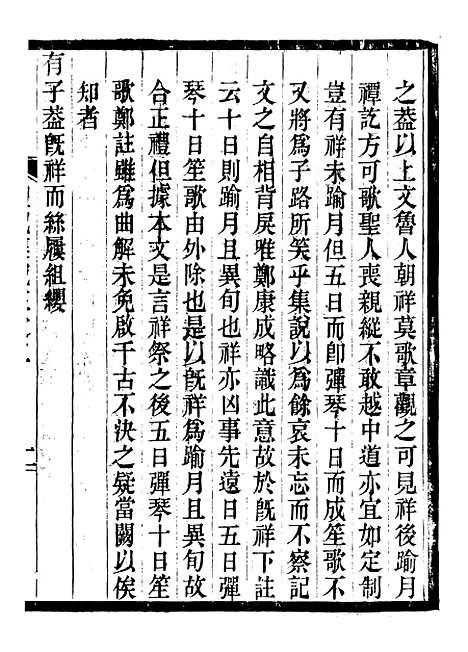 之蓋以上文魯人朝祥莫歌章觀之可見祥後踰月
禫訖方可歌聖人喪親縱不敢越中道亦宜如定制
豈有祥未踰月但五日而卽彈琴十日而成笙歌不
又將爲子路所笑乎集說以爲餘哀未忘而不察記
文之自相背戾唯鄭康成略識此意故於旣祥下註
云十日則踰月且異旬也祥亦凶事先遠日五日彈
琴十日笙歌由外除也是以旣祥爲踰月且異旬故
合正禮但據本文是言祥祭之後五日彈琴十日笙
歌鄭註雖爲曲解未免啟千古不決之疑當闕以俟
知者
有子蓋旣祥而絲屨組纓